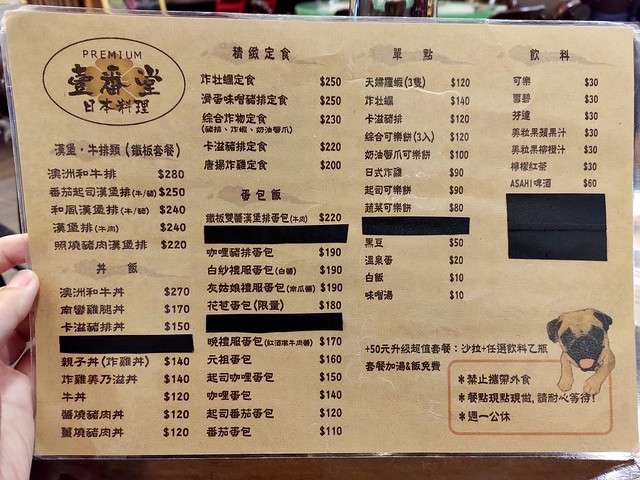 PREMIUM
壹番堂
日本料理
漢堡・牛排類（鐵板套餐）
澳洲和牛排 $280
番茄起司漢堡排(牛/豬) $250
和風漢堡排(牛/豬) $240
漢堡排(牛肉) $240
照燒豬肉漢堡排 $220
丼 飯
澳洲和牛丼 $270
南蠻雞腿丼 $170
卡滋豬排丼 $150
親子丼(炸雞丼) $140
炸雞美乃滋丼 $140
牛丼 $120
醬燒豬肉丼 $120
薑燒豬肉丼 $120
精緻定食
炸牡蠣定食 $250
滑蛋味噌豬排定食 $250
綜合炸物定食 $230
(豬排、炸蝦、奶油蟹爪)
卡滋豬排定食 $220
唐揚炸雞定食 $200
蛋包飯
鐵板雙醬漢堡排蛋包(牛肉) $220
咖哩豬排蛋包 $190
白紗禮服蛋包(白醬) $190
灰姑娘禮服蛋包(南瓜醬) $190
花苞蛋包(限量) $180
晚禮服蛋包(紅酒燉牛肉醬) $170
元祖蛋包 $160
起司咖哩蛋包 $150
咖哩蛋包 $140
起司番茄蛋包 $120
番茄蛋包 $110
單 點
天婦羅蝦(3隻) $120
炸牡蠣 $140
卡滋豬排 $120
綜合可樂餅(3入) $120
奶油蟹爪可樂餅 $100
日式炸雞 $90
起司可樂餅 $90
蔬菜可樂餅 $80
黑豆 $50
溫泉蛋 $20
白飯 $10
味噌湯 $10
飲 料
可樂 $30
雪碧 $30
芬達 $30
美粒果蘋果汁 $30
美粒果柳橙汁 $30
檸檬紅茶 $30
ASAHI 啤酒 $60
+50元升級超值套餐：沙拉+任選飲料乙瓶
套餐加湯&飯免費
＊禁止攜帶外食
＊餐點現點現做,請耐心等待!
＊週一公休